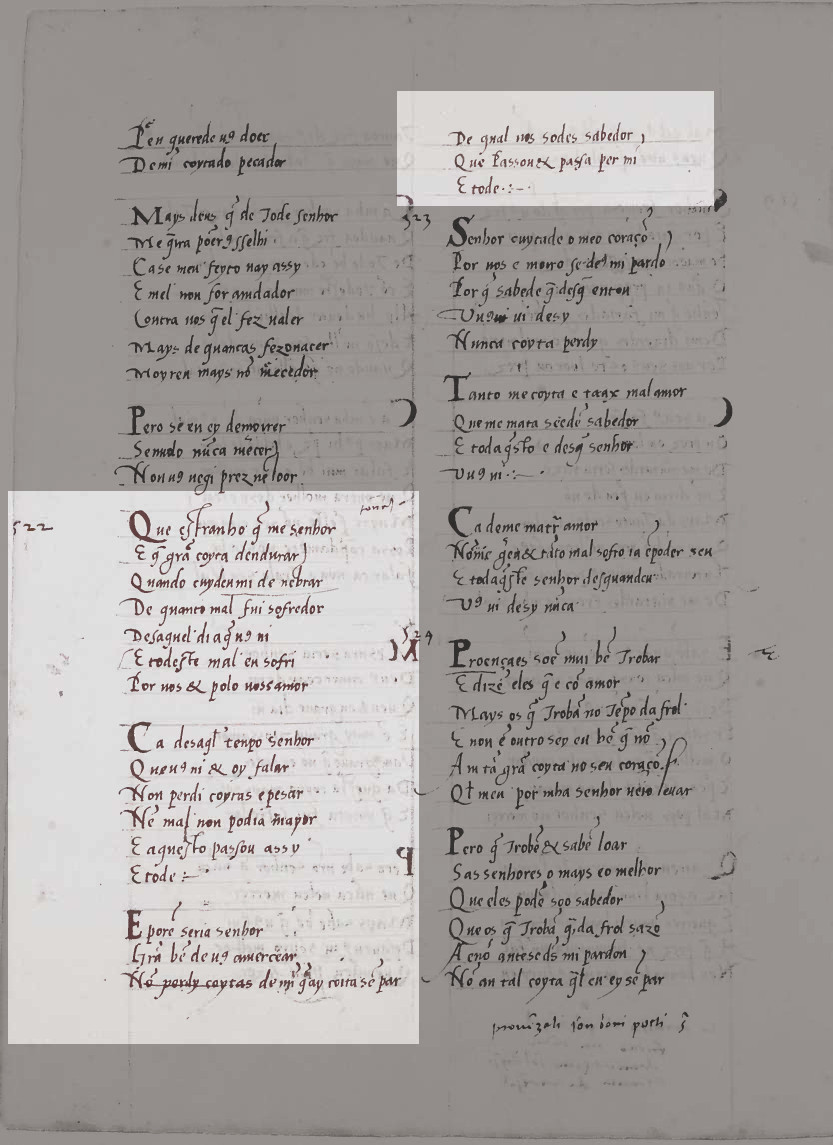 Pero querede uꝯ doer
De mi coytado pecador
Mays deus q̄ de Tode senhor
Me q̄yra põer ꝯsselhi
Ca se meu feyto uay assy
E mel non for aiudador
Contra uos q̄ el fez ualer
Mays de quantas fezo nacer
Moyreu mays nõ m̃ecedor
Pero se eu ey de moirer
Sen uolo nũca m̃ecer
Non uꝯ uegi prez nẽ loor
522
tornel
Que estranho q̄ me senhor
E q̄ grã coyta dendurar
Quando cuyden mi de nẽbrar
De quanto mal fui sofredor
Desaquel dia q̄ uꝯ ui
E todeste mal eu sofri
Por uos & polo uossamor
Ca desaq̄l tenpo senhor
Que uꝯ ui & oy falar
Non perdi coytas e pesar
Nẽ mal non podia mayor
E aquesto passou assy
E tode
E porẽ seria senhor
Grã bẽ de uꝯ amercear
Nõ perdy coytas de mj̃ q̄ ay coita sẽ par
De qual uos sodes sabedor
Que Passou & passa per mi
E tode
523
Senhor cuytade o meo coraçõ
Por uos e moiro se deꝯ mi pardo
Por q̄ sabede q̄ desq̄ entou
Vuꝯ ui desy
Nunca coyta perdy
Tanto me coyta e trax mal amor
Que me mata seedẽ sabedor
E toda q̄sto e desq̄ senhor
Vuꝯ ui
Ca de me matar amor
Nõ mic g̃ue & tãto mal sofro ia ẽ poder seu
E todaq̄ste senhor des quandeu
Vꝯ ui desy nũca
524
Proençaes soẽ mui bẽ Trobar
E dizẽ eles q̄ e cõ amor
Mays os q̄ Trobã no Tẽpo da frol
E non ẽ outro sey eu bẽ q̄ nõ
Am tã grã coyta no seu coraçõ
Q̄l meu por mha senhor ueio leuar
Pero q̄ Trobã & sabẽ loar
Sas senhores o mays e o melhor
Que eles podẽ soo sabedor
Que os q̄ Trobã q̄nda frol sazõ
A e nõ ante se ds̃ mi pardon
Nõ an tal coyta q̄l eu ey sẽ par